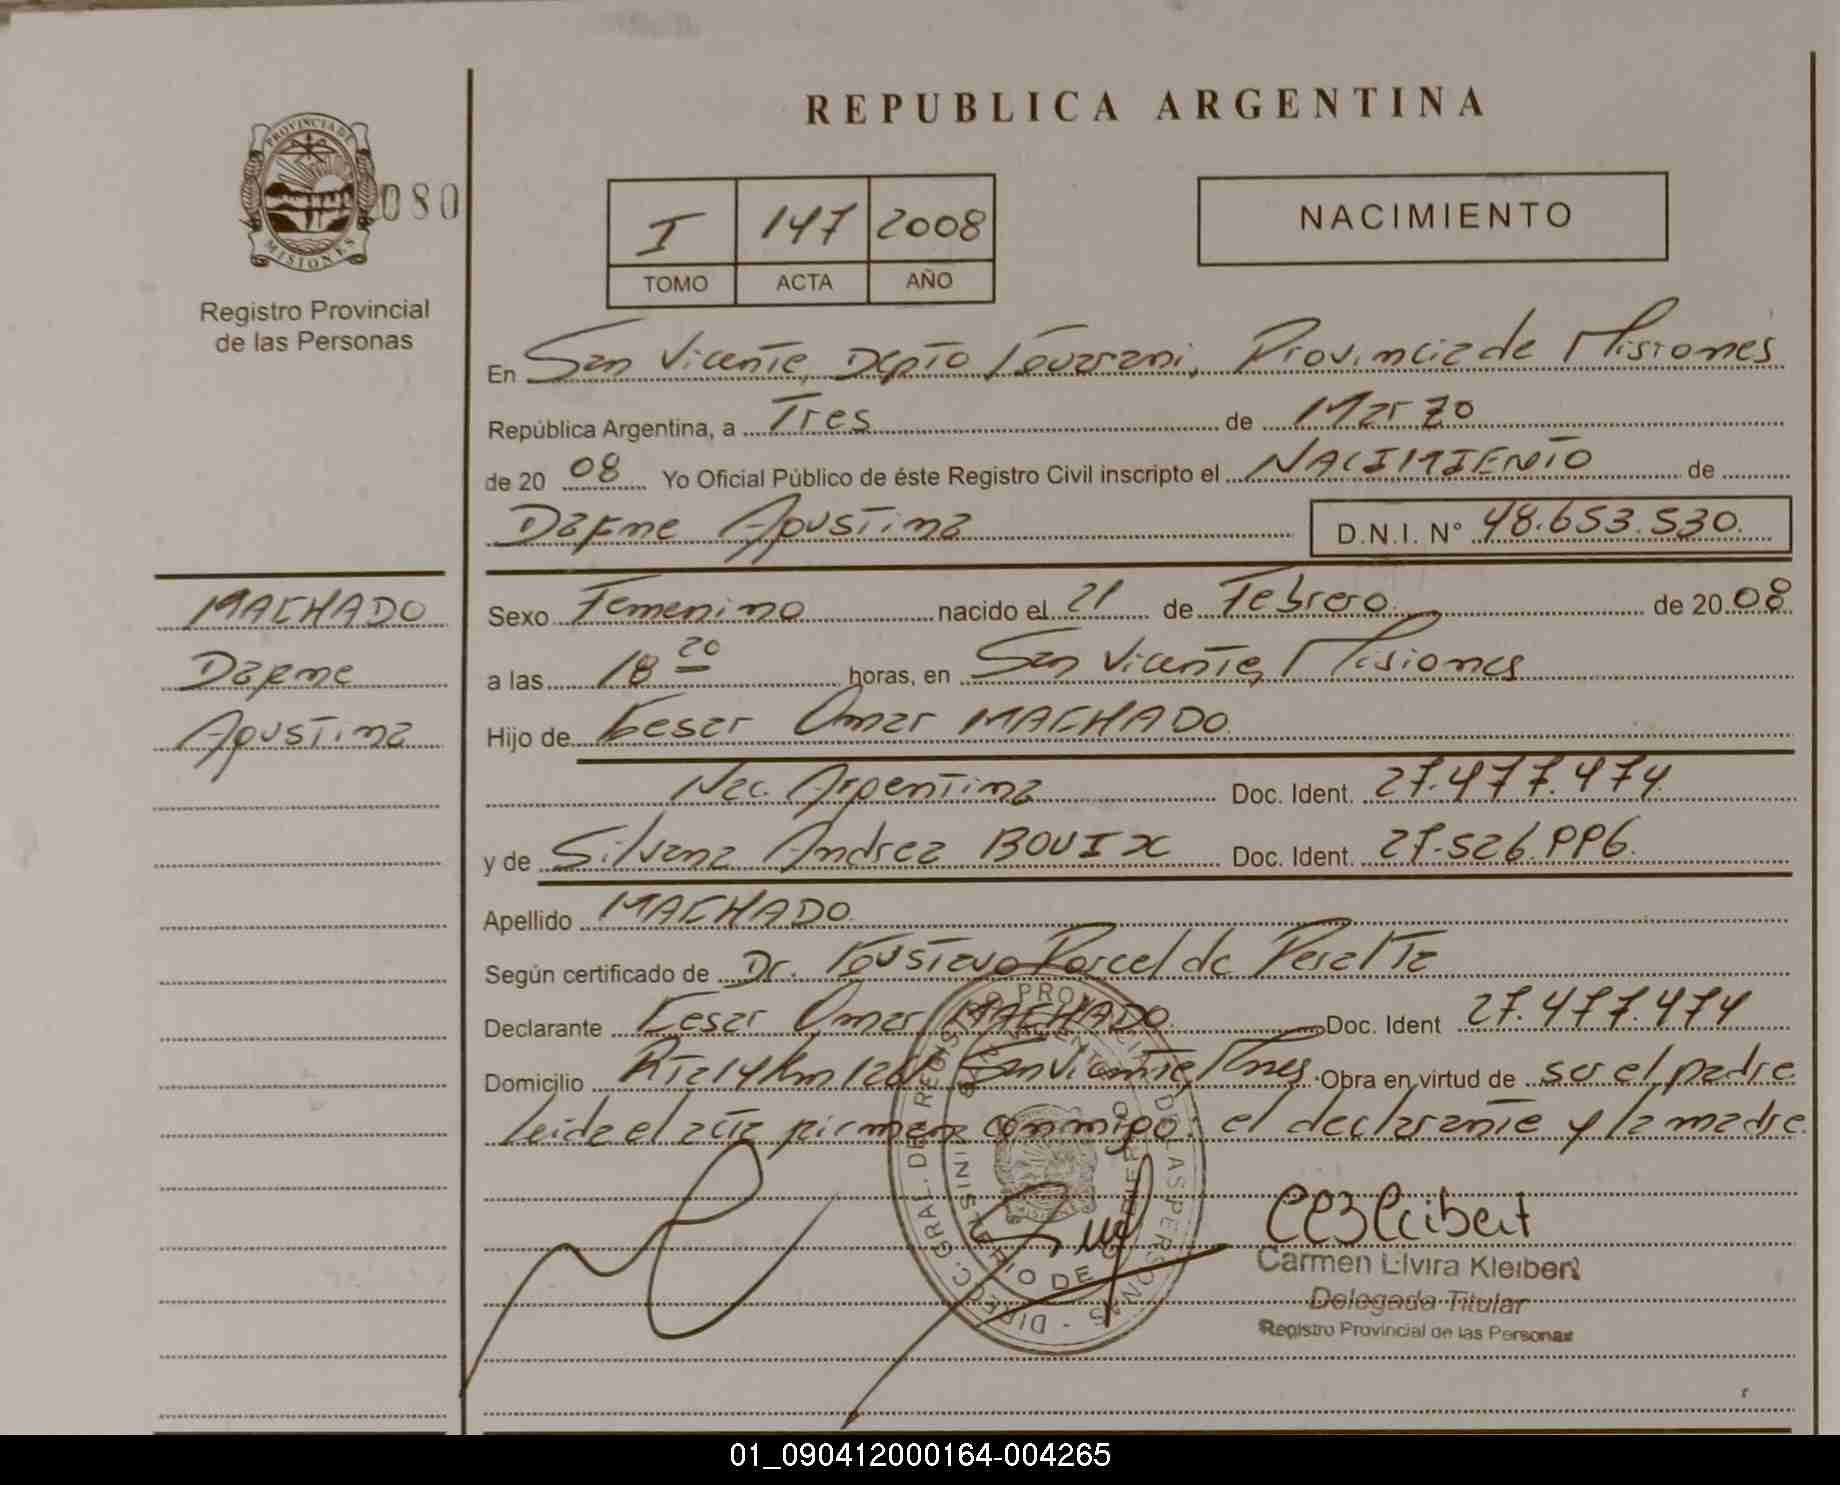 REPUBLICA ARGENTINA
PROVINCIA DE MISIONES
080
Registro Provincial
de las Personas
I 147 2008
TOMO ACTA AÑO
NACIMIENTO
En San Vicente, Depto Guarani, Provincia de Misiones
República Argentina, a Tres de Marzo
de 20 08 Yo Oficial Público de éste Registro Civil inscripto el NACIMIENTO de
Dafne Agustina D.N.I. Nº 48.653.530.
MACHADO
Dafne
Agustina
Sexo Femenino nacido el 21 de Febrero de 20 08
a las 18 20 horas, en San Vicente, Misiones
Hijo de Cesar Omar MACHADO
Nac. Argentina Doc. Ident. 27.477.474
y de Silvana Andrea BOUIX Doc. Ident. 27.526.996.
Apellido MACHADO
Según certificado de Dr. Gustavo Porcel de Peralta
Declarante Cesar Omar MACHADO Doc. Ident 27.477.474
Domicilio Rta 14 Km San Vicente, Mnes. Obra en virtud de ser el padre
Leida el acta firman conmigo: el declarante y la madre.
DIREC. GRAL. DEL REGISTRO PROVINCIAL DE LAS PERSONAS
MINISTERIO DE GOBIERNO
Carmen Elvira Kleibert
Delegada Titular
Registro Provincial de las Personas
01_090412000164-004265